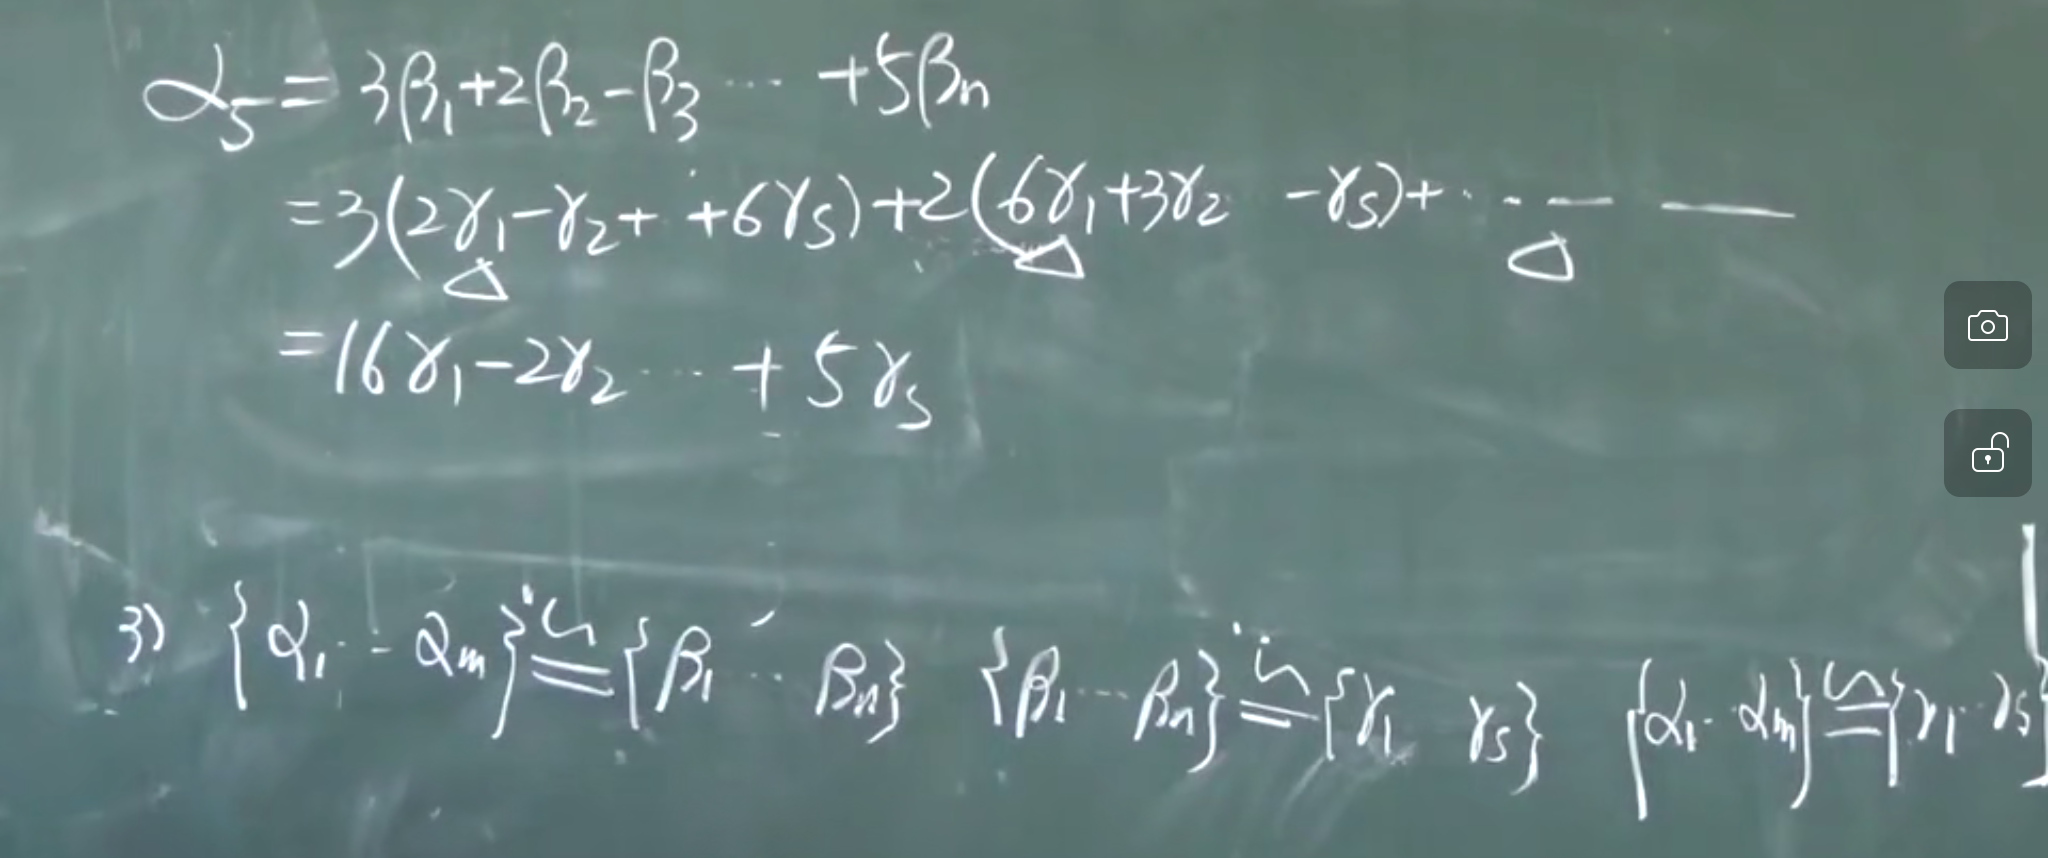 α₅ = 3β₁+2β₂-β₃ ··· +5βn
=3(2γ₁-γ₂+ +6γs)+2(6γ₁+3γ₂ -γs)+ ··· — —
=16γ₁-2γ₂ ··· +5γs
3) {α₁ ·· αm} ≌ {β₁ ·· βn} {β₁ ··· βn} ≌ {γ₁ γs} {α₁ ·· αm} ≌ {γ₁ ·· γs}